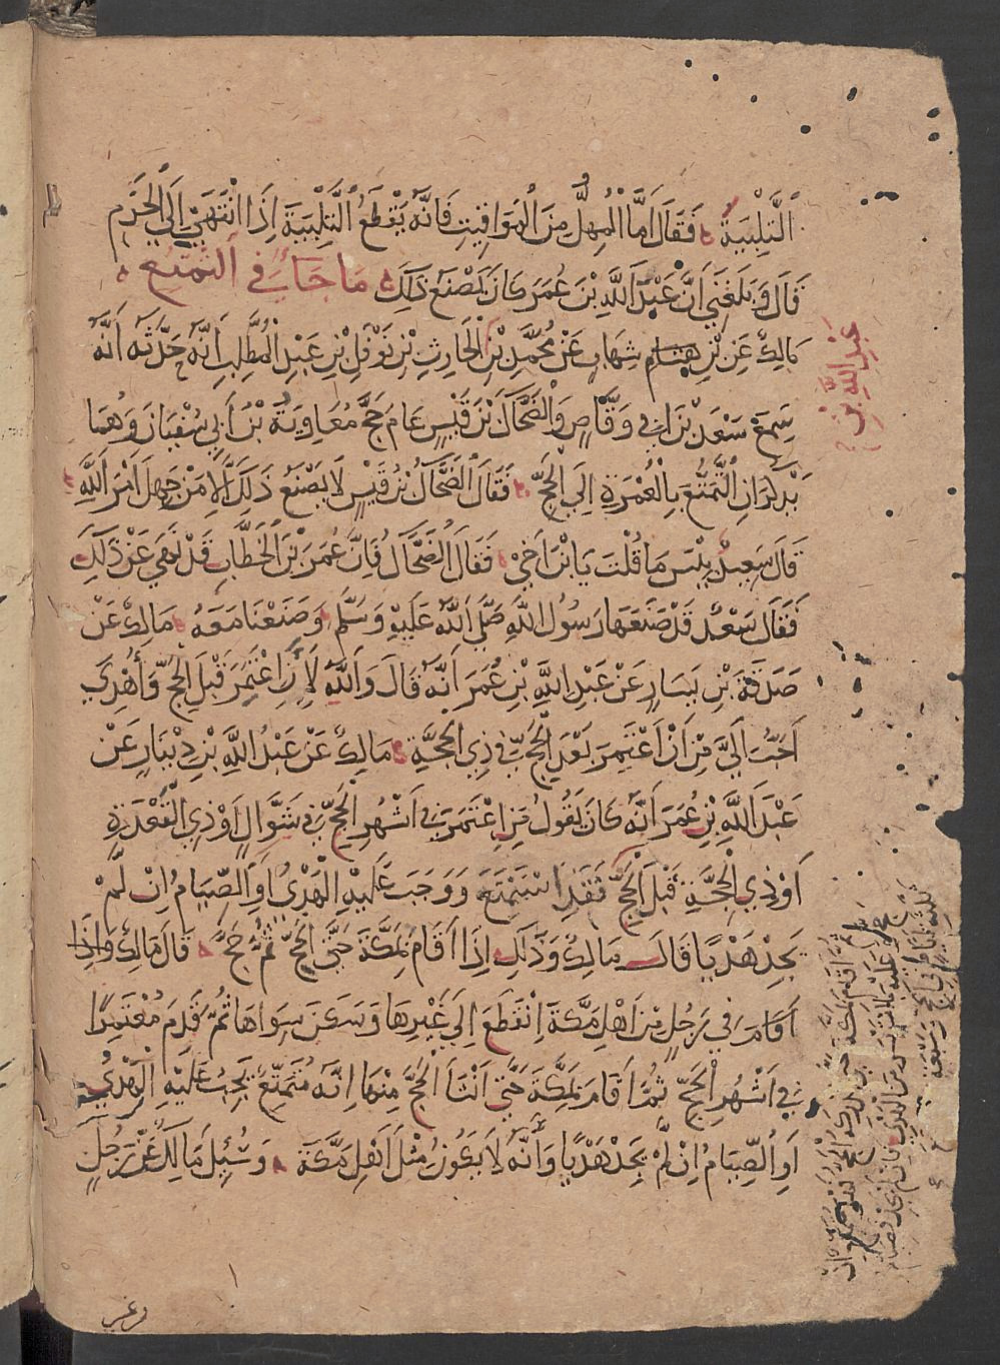 التَّلْبِيَةُ فَقَالَ اَمَّا الْمُهِلُّ مِنَ الْمَوَاقِيتِ فَاِنَّهُ يَقْطَعُ التَّلْبِيَةَ اِذَا انْتَهَى اِلَى الْحَرَمِ
قَالَ وَبَلَغَنِي اَنَّ عَبْدَ اللَّهِ بْنَ عُمَرَ كَانَ يَصْنَعُ ذَلِكَ مَا جَاءَ فِي التَّمَتُّعِ
مَالِكٌ عَنِ بْنِ شِهَابٍ عَنْ مُحَمَّدِ بْنِ الْحَارِثِ بْنِ نَوْفَلِ بْنِ عَبْدِ الْمُطَّلِبِ اَنَّهُ حَدَّثَهُ اَنَّهُ
عَبْدِ اللَّهِ بْنِ
سَمِعَ سَعْدَ بْنَ اَبِي وَقَّاصٍ وَالضَّحَّاكَ بْنَ قَيْسٍ عَامَ حَجَّ مُعَاوِيَةُ بْنُ أَبِي سُفْيَانَ وَهُمَا
يَذْكُرَانِ التَّمَتُّعَ بِالْعُمْرَةِ اِلَى الْحَجِّ فَقَالَ الضَّحَّاكُ بْنُ قَيْسٍ لَا يَصْنَعُ ذَلِكَ اِلَّا مَنْ جَهِلَ اَمْرَ اللَّهِ
قَالَ سَعِيدٌ بِئْسَ مَا قُلْتَ يَا بْنَ اَخِي فَقَالَ الضَّحَّاكُ فَاِنَّ عُمَرَ بْنَ الْخَطَّابِ قَدْ نَهَى عَنْ ذَلِكَ
فَقَالَ سَعْدٌ قَدْ صَنَعَهَا رَسُولُ اللَّهِ صَلَّى اللَّهُ عَلَيْهِ وَسَلَّمَ وَصَنَعْنَا مَعَهُ مَالِكٌ عَنْ
صَدَقَةَ بْنِ يَسَارٍ عَنْ عَبْدِ اللَّهِ بْنِ عُمَرَ اَنَّهُ قَالَ وَاللَّهِ لَاَنْ اَعْتَمِرَ قَبْلَ الْحَجِّ وَأُهْدِيَ
اَحَبُّ اِلَيَّ مِنْ اَنْ اَعْتَمِرَ بَعْدَ الْحَجِّ فِي ذِي الْحَجَّةِ مَالِكٌ عَنْ عَبْدُ اللَّهِ بْنِ دِيْنَارٍ عَنْ
عَبْدِ اللَّهِ بْنِ عُمَرَ اَنَّهُ كَانَ يَقُولُ مَنِ اعْتَمَرَ فِي اَشْهُرِ الْحَجِّ فِي شَوَّالٍ اَوْ ذِي الْقَعْدَةِ
اَوْ ذِي الْحِجَّةِ قَبْلَ الْحَجِّ فَقَدِ اسْتَمْتَعَ وَوَجَبَ عَلَيْهِ الْهَدْيُ اَوِ الصِّيَامُ اِنْ لَمْ
يَجِدْ هَدْيًا قَالَ مَالِكٌ وَذَلِكَ اِذَا اَقَامَ بِمَكَّةَ حَتَّى الْحَجِّ ثُمَّ حَجَّ قَالَ مَالِكٌ وَاِذَا
اَقَامَ فِي رَجُلٍ مِنْ اَهْلِ مَكَّةَ اِنْقَطَعَ اِلَى غَيْرِهَا وَسَكَنَ سِوَاهَا ثُمَّ قَدِمَ مُعْتَمِرًا
فِي اَشْهُرِ الْحَجِّ ثُمَّ اَقَامَ بِمَكَّةَ حَتَّى اَنْشَأَ الْحَجَّ مِنْهَا اِنَّهُ مُتَمَتِّعٌ يَجِبُ عَلَيْهِ الْهَدْيُ
اَوِ الصِّيَامُ اِنْ لَمْ يَجِدْ هَدْيًا وَأَنَّهُ لَا يَكُونُ مِثْلَ اَهْلِ مَكَّةَ وَسُئِلَ مَالِكٌ عَنْ رَجُلٍ